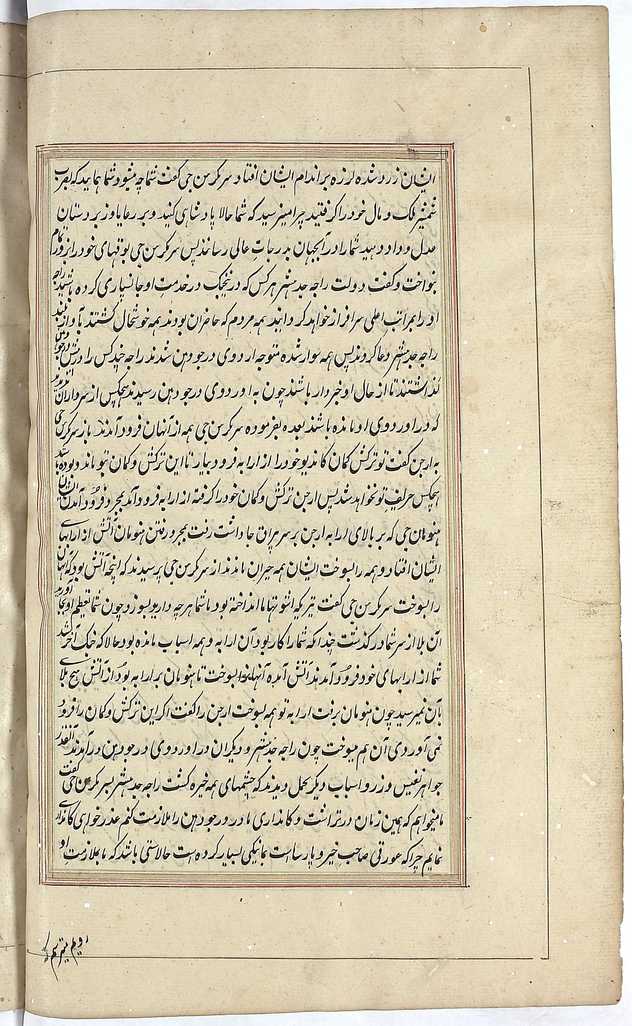 ایشان زرد شده لرزه بر اندام ایشان افتاد سرکرسن جی گفت شما چه میشود شما بیائید که بضرب
شمشیر ملک و مال خود را گرفتید چرا میترسید که شما حالا پادشاهی کنید و بر رعایا و زیردستان
عدل و داد دهید شما را در آنجهان بدرجات عالی رسانند پس سرکرسن جی بوقهای خود را
بنواخت و گفت دولت راجه جدهشتر هر کس که در جنگ در خدمت او جانسپاری کرده باشد
او را بمراتب اعلی سرافراز خواهد گردانید همه مردم که حاضران بودند همه خوشحال گشتند
راجه جدهشتر دعا کردند پس همه سوار شده متوجه اردوی درجودهن شدند راجه چند کس را
گذاشتند تا از حال او خبردار باشند چون به اوردوی درجودهن رسیدند هیچکس از سرداران
که در اوردوی او مانده باشند بعده بفرموده سرکرسن جی همه از آنهان فرود آمدند باز سرکرسن جی
به ارجن گفت تو ترکش کمان کاندیو خود را از ارابه فرود بیار تا این ترکش و کمان بتو مانده بود
هیچکس حریف تو نخواهد شد پس ارجن ترکش و کمان خود را گرفته از ارابه فرود آمد بمجرد فرود آمدن
هنومان جی که بر بالای ارابه ارجن بر سر بیرق جا داشت رفت بمجرد رفتن هنومان آتش از ارابهای
ایشان افتاد و همه را بسوخت ایشان همه حیران ماندند از سرکرسن جی پرسیدند که اینچه آتش بود که اینهان
را بسوخت سرکرسن جی گفت تیر که اشوتهاما انداخته بود با شما هر چه دارید بسوزد چون شما تعظیم او
آن بلا از سر شما درگذشت چندا که شما را کار بود آن ارابه و همه اسباب مانده بود حالا که جنگ آخر شد
شما از ارابهای خود فرود آمدند آتش آمده آنها را بسوخت تا هنومان بر ارابه بود از آتش هیچ بلای
بآن نمیرسید چون هنومان برفت ارابه تو همه بسوخت ارجن را گفت اگر این ترکش و کمان را فرود
نمی آوردی آن هم میسوخت چون راجه جدهشتر و دیگران در اوردوی درجودهن درآمدند آنقدر
جواهر نفیس و زر و اسباب دیگر بمحل دیدند که چشمهای همه خیره گشت راجه جدهشتر بسرکرسن جی گفت
ما میخواهم که همین زمان دهرتراشت و کاندهاری مادر درجودهن را ملازمت کنم عذرخواهی کاندهاری
نمایم چرا که عورتی صاحب خیر و پارساست بما نیکی بسیار کرده است حالا نشستی باشد که ما بملازمت او
رویم میترسم که